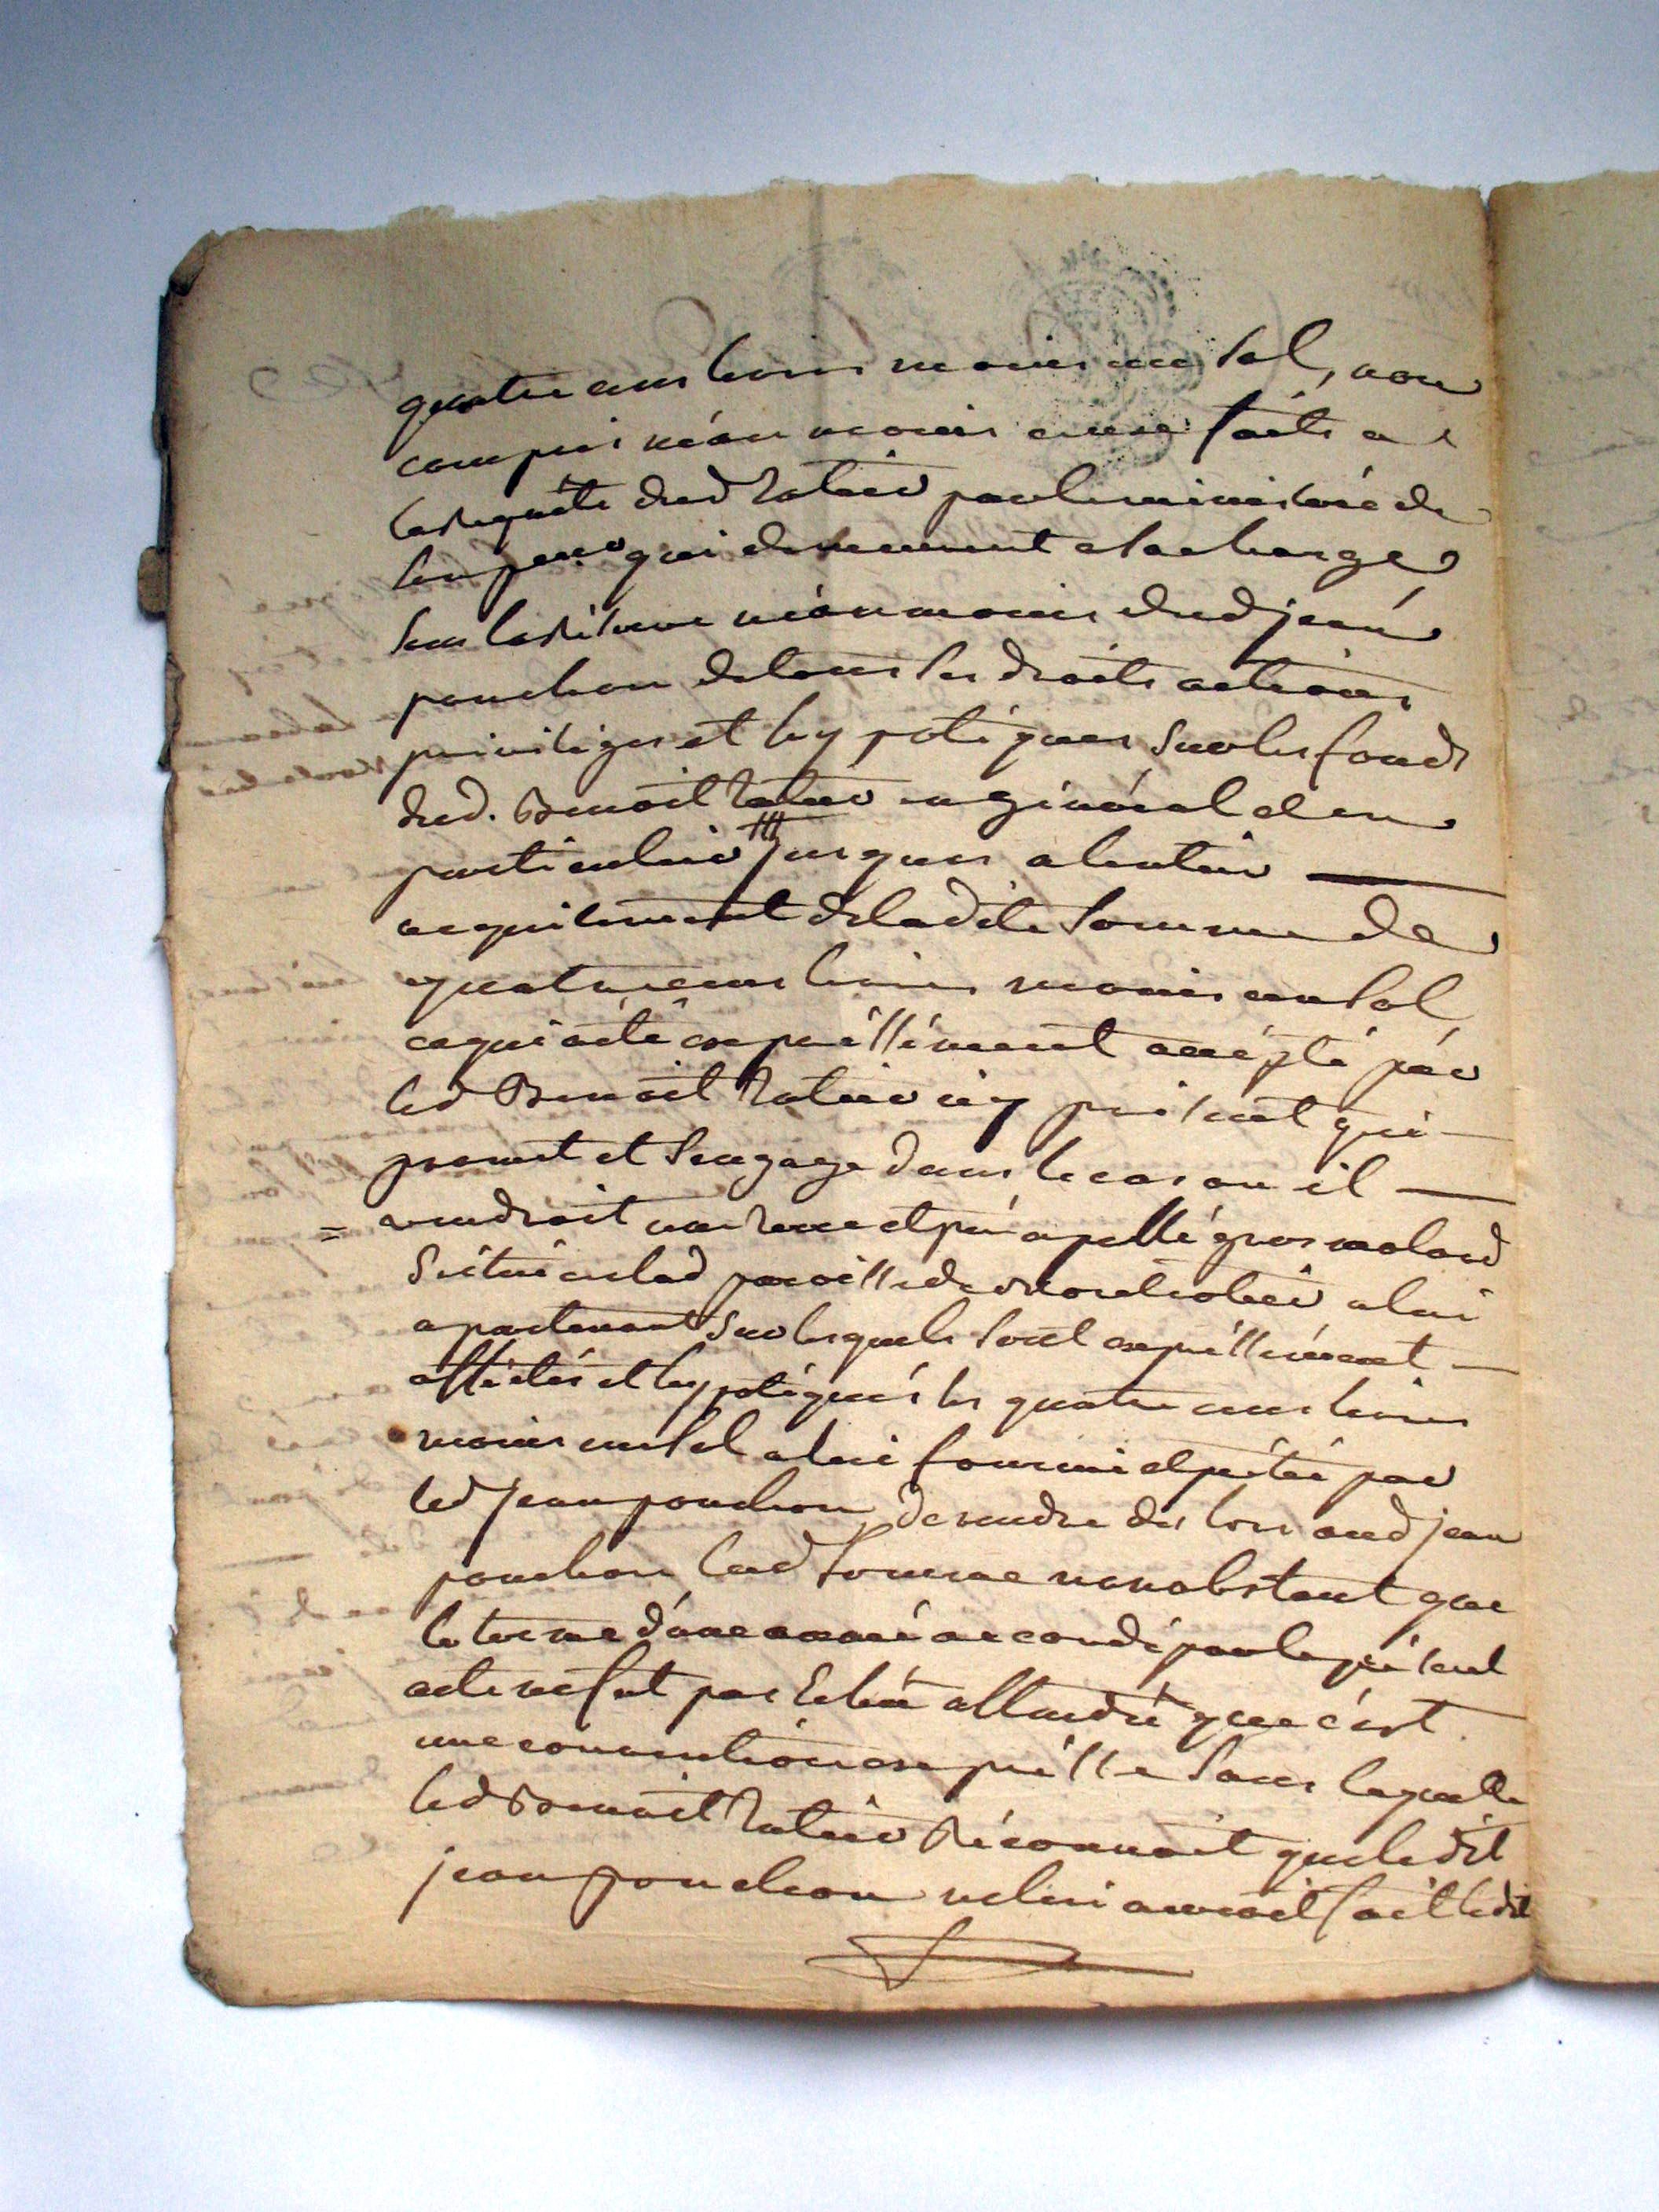 quatre cens livres moins un sol, non
compris néanmoins ceux faits a
la requete dud Ratier par le ministere de
qui demeurent a la charge
sous la réserve néanmoins dud jean
ponchon de tous ses droits actions
privileges et hypotéques sur les fonds
dud. Benoit Ratier en général et en
particulier jusques a l'entier
acquitement de la dite somme de
quatre cens livres moins un sol
ce qui a été expréssément accépté pár
led Benoit Ratier icy présent qui
promet et s'engage dans le cas ou il
= vendroit une terre et pré apellé gros molard
scitué en lad paroisse de a lui
apartenant sur lesquels sont expréssément
afféctés et hypotéqués les quatre cens livres
moins un sol a lui fourni et prété par
led jean ponchon, de rendre des lors aud jean
ponchon lad somme nonobstant que
le terme d'une année accordé par le présent
acte ne fut pas Echu attendu que c'est
une convention exprésse sans laquelle
led Benoit Ratier réconnoit que le dit
jean ponchon ne lui auroit fait ledit